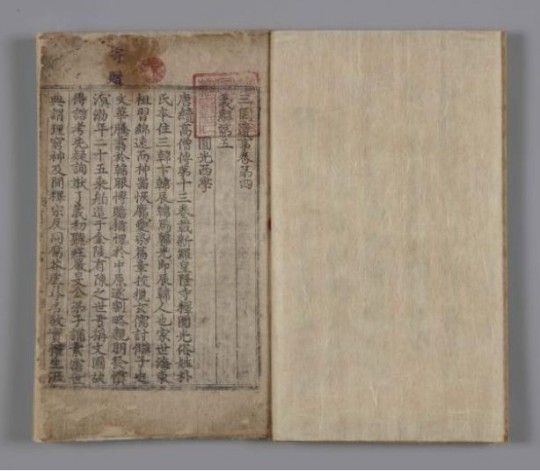 三國遺事卷第四
義解第五
圓光西學
唐續高僧傳第十三卷載新羅皇隆寺釋圓光俗姓朴
氏本住三韓卞韓辰韓馬韓光即辰韓人也家世海東
祖習綿遠而神器恢廓愛染篇章校獵玄儒討讎子史
文華騰翥於韓服博贍猶愧於中原遂割略親朋發憤
溟渤年二十五乘舶造于金陵有陳之世號稱文國故
得諮考先疑詢猷了義初聽莊嚴旻公弟子講素霑世
典謂理窮神及聞釋宗反同腐芥虛尋名教實懼生涯